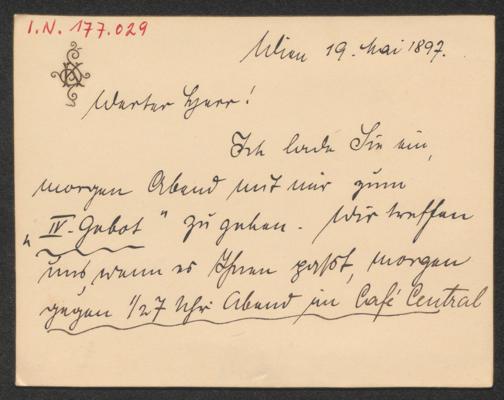 I.N. 177.029
Wien 19. Mai 1897.
Werter Herr!
Ich lade Sie ein,
morgen Abend mit mir zum
„IV. Gebot" zu gehen. Wir treffen
uns, wenn es Ihnen paßt, morgen
gegen 1/2 7 Uhr Abend im Café Central